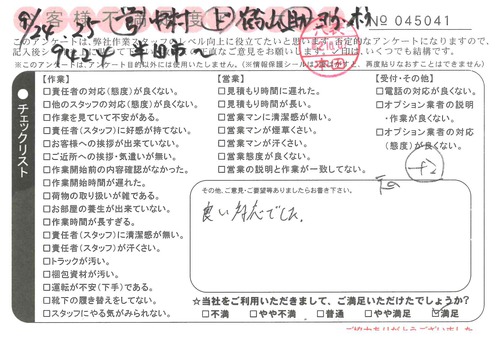 9/24 25
No 045041
このアンケートは、弊社作業スタッフのレベル向上に役立てたいと思います。否定的なアンケートになりますので、
記入後シールを
※このアンケートは、アンケート目的以外には使いいたしません。
チェックリスト
【作業】
□責任者の対応(態度)が良くない。
□他のスタッフの対応(態度)が良くない。
□作業を見ていて不安がある。
□責任者(スタッフ)に好感が持てない。
□お客様への挨拶が出来ていない。
□ご近所への挨拶・気遣いが無い。
□作業開始前の内容確認がなかった。
□作業開始時間が遅れた。
□荷物の取り扱いが雑である。
□お部屋の養生が出来ていない。
□作業時間が長すぎる。
□責任者(スタッフ)に清潔感が無い。
□責任者(スタッフ)が汗くさい。
□トラックが汚い。
□梱包資材が汚い。
□運転が不安(下手)である。
□靴下の履き替えをしてない。
□スタッフにやる気がみられない。
【営業】
□見積もり時間に遅れた。
□見積もり時間が長い。
□営業マンに清潔感が無い。
□営業マンが煙草くさい。
□営業マンが汗くさい。
□営業態度が良くない。
□営業の説明と作業が一致してない。
【受付・その他】
□電話の対応が良くない。
□オプション業者の説明
・作業が良くない。
□オプション業者の対応
(態度)が良くない。
その他、ご意見・ご要望等ありましたらお書き下さい。
良い対応でした。
☆当社をご利用いただきまして、ご満足いただけたでしょうか?
□不満 □やや不満 □普通 □やや満足 ☑満足
ご協力ありがとうございました